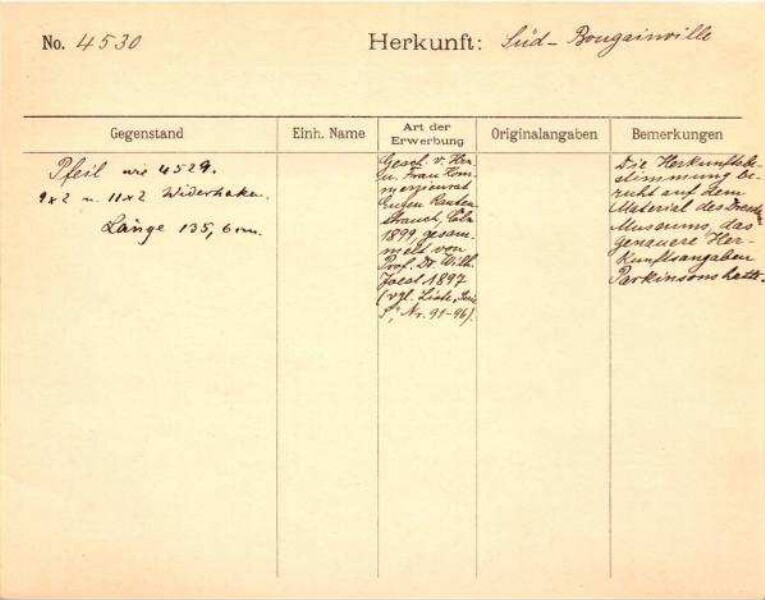 No. 4530 Herkunft: Süd-Bougainville
Gegenstand Einh. Name Art der Erwerbung Originalangaben Bemerkungen
Pfeil wie 4529.
9x2 u. 11x2 Widerhaken.
Länge 135,6 cm.
Gesch. v. Herr
u. Frau Kom-
merzienrat
Eugen Rauten-
strauch, Cöln
1899, gesam-
melt von
Prof. Dr. Wilh.
Joest 1897
(vgl. Liste, Serie
Nr. 91-96).
Die Herkunftsbe-
stimmung be-
ruht auf dem
Material des Dresdner
Museums, das
genauere Her-
kunftsangaben
Parkinsons hatte.